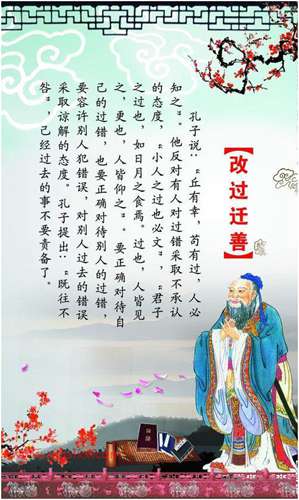 【改过迁善】
孔子说："丘有幸，苟有过，人必
知之"。他反对有人对过错采取不承认
的态度，"小人之过也必文"，"君子
之过也，如日月之食焉。过也，人皆见
之，更也，人皆仰之"。要正确对待自
己的过错，也要正确对待别人的过错，
要容许别人犯错误，对别人过去的错误
采取谅解的态度。孔子提出："既往不
咎"，已经过去的事不要责备了。